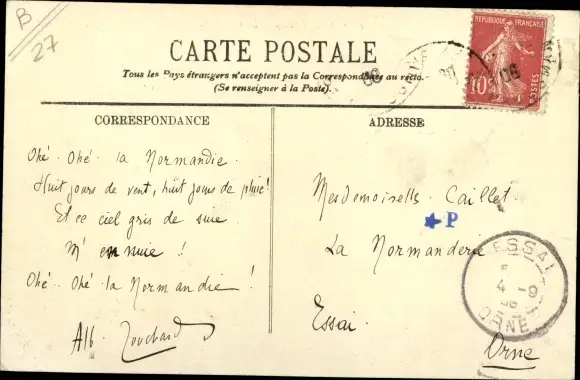 B
27
CARTE POSTALE
Tous les Pays étrangers n'acceptent pas la Correspondance au recto.
(Se renseigner à la Poste).
RÉPUBLIQUE FRANÇAISE
10
POSTES
06
CORRESPONDANCE
Ohé. Ohé. la Normandie.
Huit jours de vent, huit jours de pluie!
Et ce ciel gris de suie
M'ennuie !!
Ohé. Ohé. la Normandie !
Alb. Touchard
ADRESSE
Mesdemoiselles Caillet.
P
La Normanderie
Essai.
Orne
ESSAI
4 - 9
06
ORNE